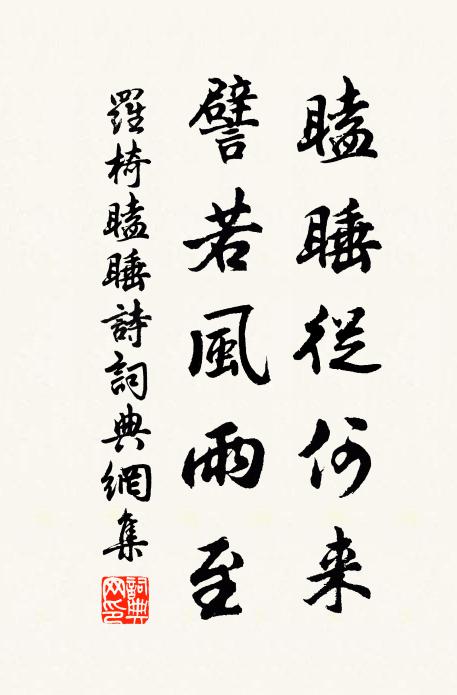 瞌睡從何来
譬若風雨至
羅椅瞌睡詩詞典網集
詞典网印